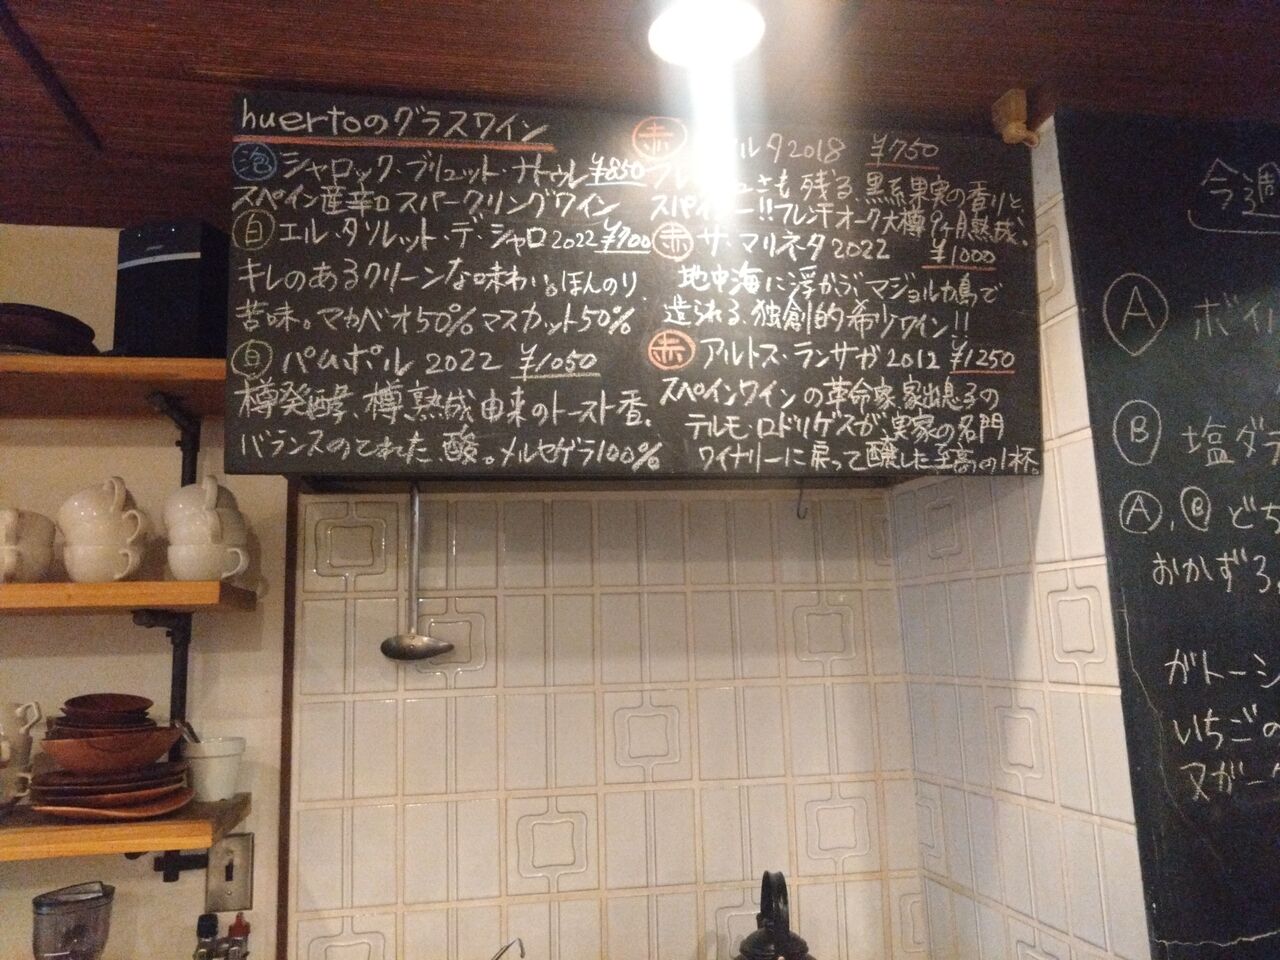 huertoのグラスワイン
泡 シャロック・ブリュット・ナトゥレ ¥850
スペイン産辛口スパークリングワイン
白 エル・タソレット・デ・シャロ 2022 ¥900
キレのあるクリーンな味わい。ほんのり
苦味。マカベオ50% マスカット50%
白 パムポル 2022 ¥1050
樽発酵、樽熟成由来のトースト香。
バランスのとれた酸。メルセゲラ100%
赤 ルタ2018 ¥750
さも残る、黒系果実の香りと、
スパイシー!!フレンチオーク大樽9ヶ月熟成。
赤 サ・マリネタ2022 ¥1000
地中海に浮かぶ、マジョルカ島で
造られる、独創的希少ワイン!!
赤 アルトス・ランサガ2012 ¥1250
スペインワインの革命家、家出息子の
テルモ・ロドリゲスが、実家の名門
ワイナリーに戻って醸した至高の1杯。
今週
A ボイル
B 塩ダラ
A, B どち
おかず3
ガトーシ
いちごの
ヌガー